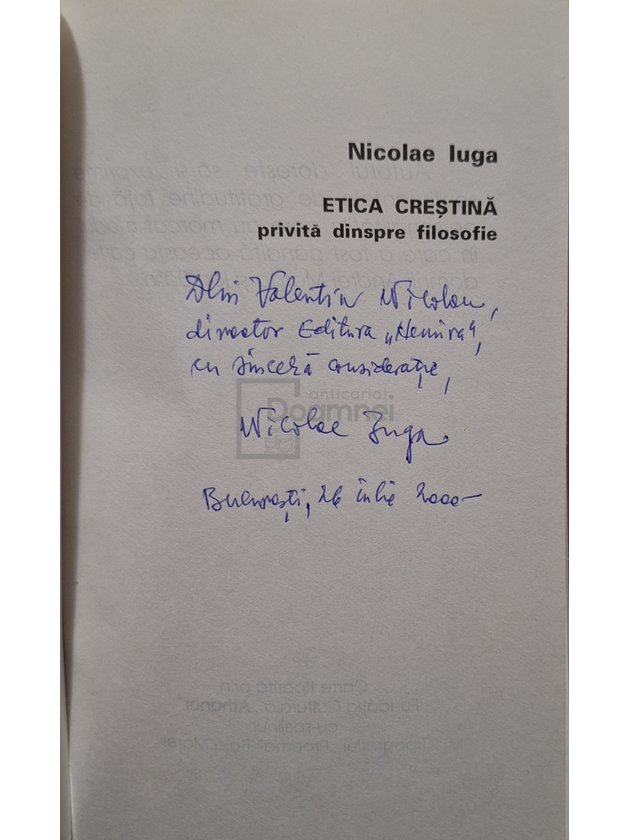 Nicolae Iuga
ETICA CREȘTINĂ
privită dinspre filosofie
Dlui Valentin Nicolau,
director Editura „Nemira",
cu sinceră considerație,
anticariat
Doamnei
Nicolae Iuga
București, 26 iulie 2000